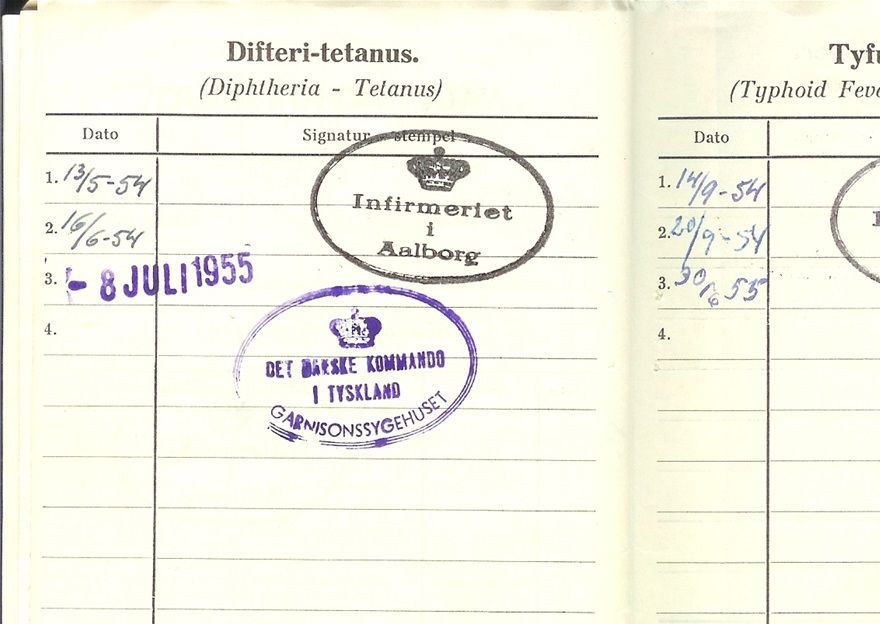 Difteri-tetanus.
(Diphtheria - Tetanus)
Dato
Signatur - stempel
1. 13/5-54
2. 16/6-54
3. - 8 JULI 1955
4.
Infirmeriet
i
Aalborg
DET DANSKE KOMMANDO
I TYSKLAND
GARNISONSSYGEHUSET
Tyf
(Typhoid Feve
Dato
1. 14/9-54
2. 20/9-54
3. 30/6 55
4.